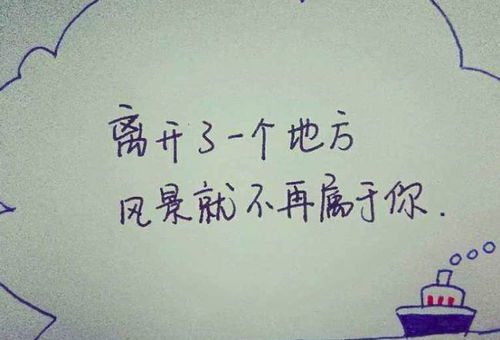 离开了一个地方
风景就不再属于你.